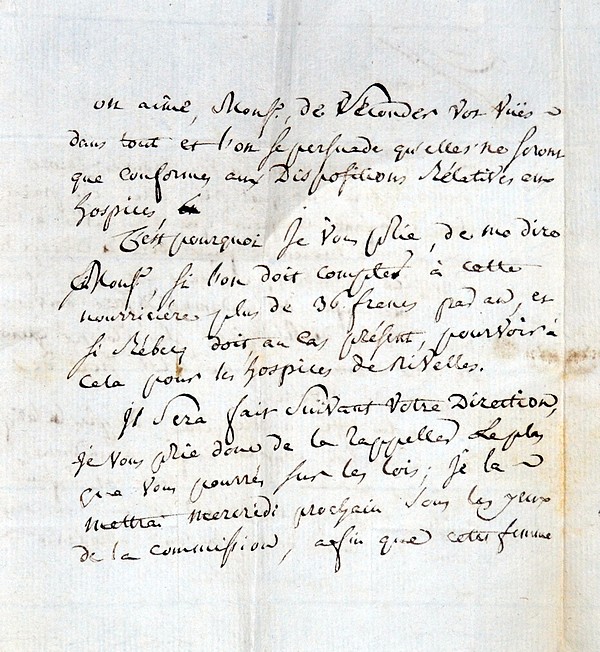 on aime, Monsr., de séconder vos vües
dans tout et l'on se persuade qu'elles ne seront
que conformes aux Dispositions Rélatives aux
hospices,
C'est pourquoi Je vous prie, de me dire
Monsr., si l'on doit compter à cette
nourricière plus de 36 francs par an, et
si Rébecq doit, au cas présent, pourvoir à
cela pour les hospices de Nivelles.
Il sera fait suivant votre Direction,
je vous prie donc de la rappeller le plus
que vous pourrés sur les lois; Je la
mettrai mercredi prochain sous les yeux
de la commission, afin que cette femme